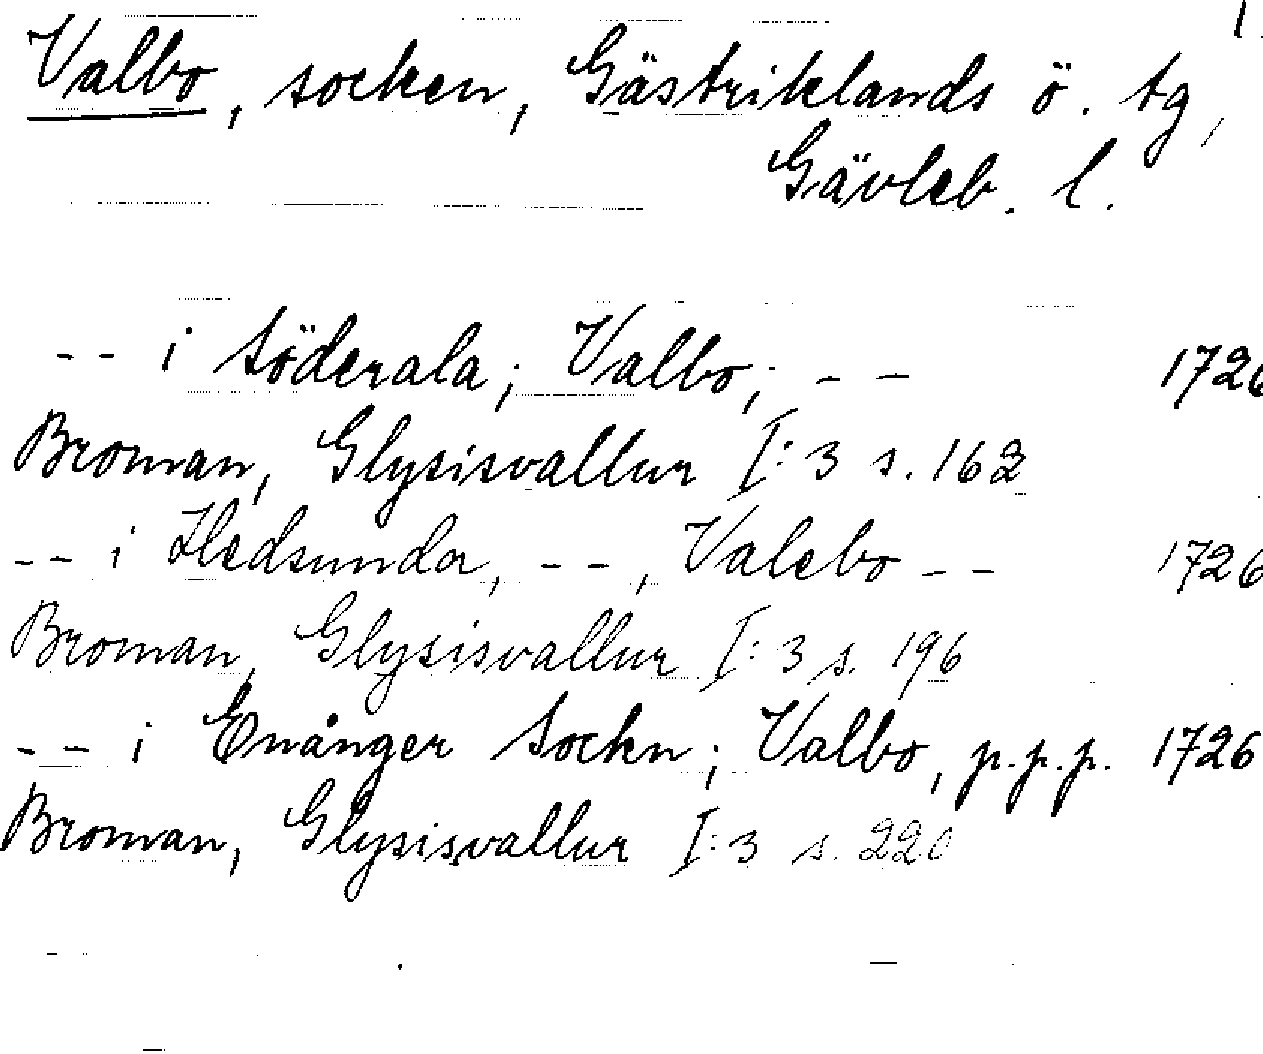 1
Valbo, socken, Gästriklands ö. tg,
Gävleb. l.
-- i Söderala; Valbo; -- 1726
Broman, Glysisvallur I:3 s. 162
-- i Hedsunda, --, Valebo -- 1726
Broman, Glysisvallur I:3 s. 196
-- i Enånger Sockn; Valbo, p.p.p. 1726
Broman, Glysisvallur I:3 s. 220